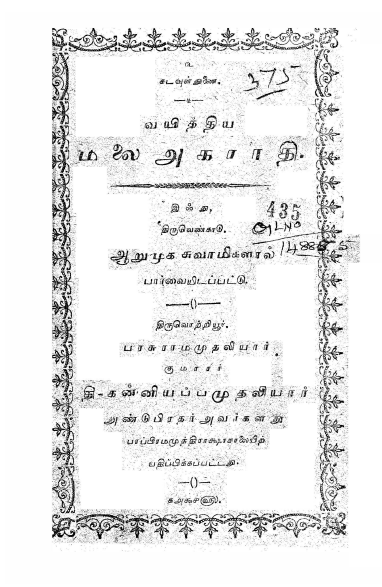 உ
கடவுள்துணை.
375
வயித்திய
மலை அகராதி.
இஃது,
திருவெண்காடு.
435
ஆறுமுக சுவாமிகளால்
பார்வையிடப்பட்டு.
திருவொற்றியூர்.
பாசுராமமுதலியார்
குமாரர்
தி-கன்னியப்பமுதலியார்
அண்டுபிரதர் அவர்களது
பதிப்பிக்கப்பட்டது.